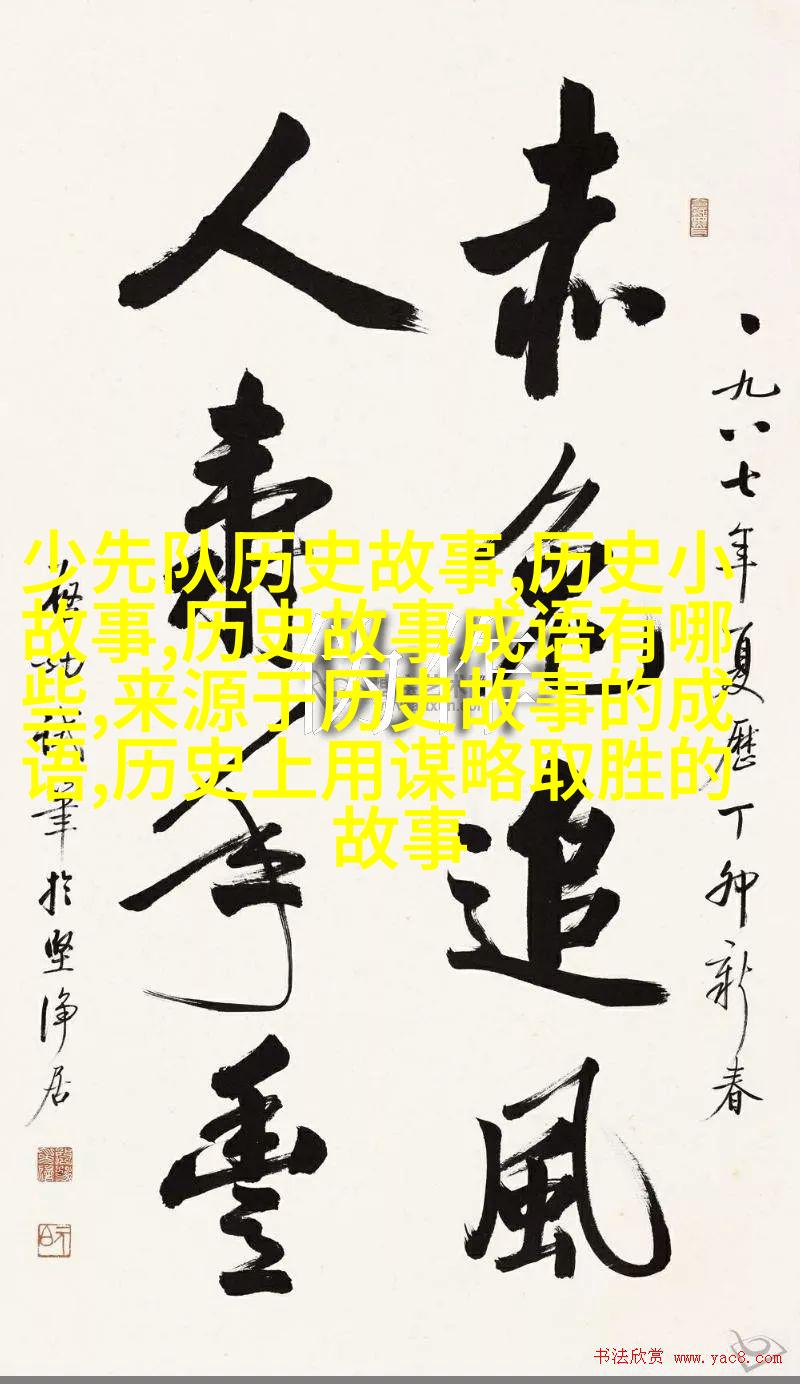 一九八七年夏历丁卯新春
赤兔追風
人壽年豐
啓功試筆於堅净居
少先队历史故事,历史小
故事,历史故事成语有哪
些,来源于历史故事的成
语,历史上用谋略取胜的
故事
书法欣赏 www.yac8.com